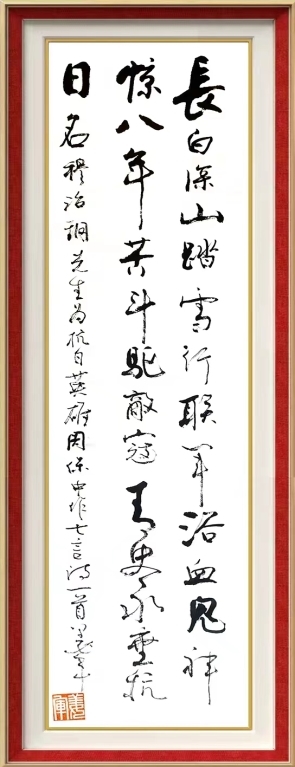 長白深山踏雪行联军浴血鬼神
惊八年苦斗驱敵寇青史永垂抗
日名 穆治先生为抗日英雄周保中作七言诗一首